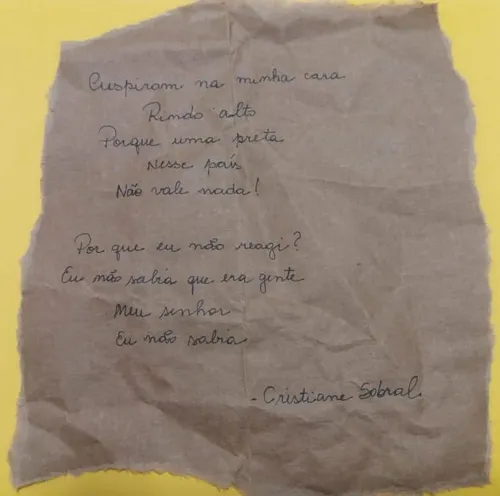 Cuspiram na minha cara
Rindo alto
Porque uma preta
Nesse país
Não vale nada!
Por que eu não reagi?
Eu não sabia que era gente
Meu senhor
Eu não sabia
- Cristiane Sobral.